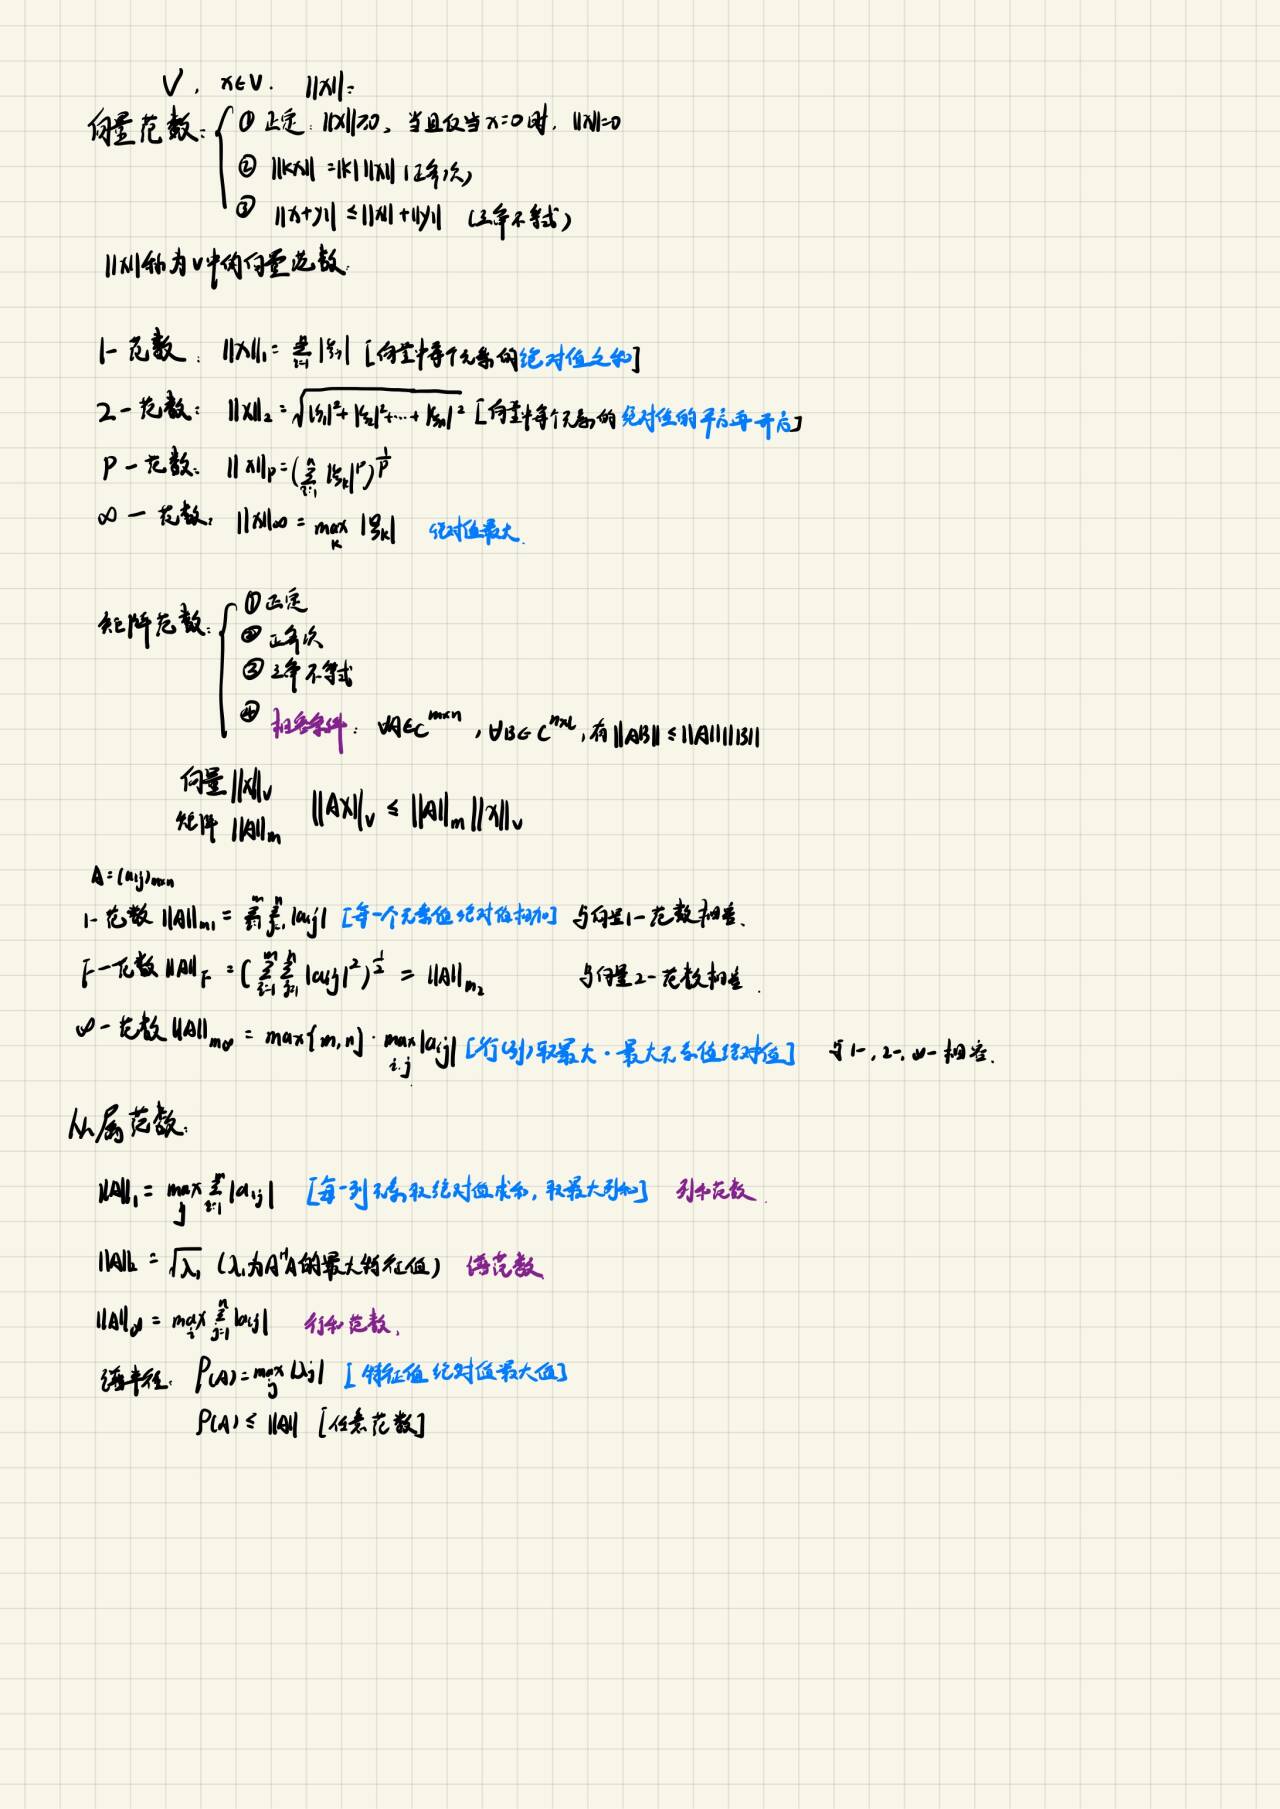 V, x∈V. ||x||:
向量范数: ① 正定: ||x||≥0, 当且仅当x=0时, ||x||=0
② ||kx|| = |k| ||x|| (正齐次)
③ ||x+y|| ≤ ||x|| + ||y|| (三角不等式)
||x||称为V中的向量范数.
1-范数: ||x||₁ = ∑ᵢ₌₁ⁿ |ξᵢ| [向量中每个元素的绝对值之和]
2-范数: ||x||₂ = √(|ξ₁|²+|ξ₂|²+…+|ξₙ|²) [向量中每个元素的绝对值的平方再开方]
P-范数: ||x||ₚ = (∑ᵢ₌₁ⁿ |ξₖ|ᵖ)^(1/p)
∞-范数: ||x||∞ = max_k |ξₖ| 绝对值最大.
矩阵范数: ① 正定
② 正齐次
③ 三角不等式
④ 相容条件: ∀A∈C^(m×n), ∀B∈C^(n×l), 有||AB|| ≤ ||A|| ||B||
向量||x||_v
矩阵 ||A||_m ||Ax||_v ≤ ||A||_m ||x||_v
A=(aᵢⱼ)m×n
1-范数 ||A||_m₁ = ∑ᵢ₌₁ᵐ ∑ⱼ₌₁ⁿ |aᵢⱼ| [每一个元素值绝对值相加] 与向量1-范数相容.
F-范数 ||A||_F = (∑ᵢ₌₁ᵐ ∑ⱼ₌₁ⁿ |aᵢⱼ|²)^(1/2) = ||A||_m₂ 与向量2-范数相容.
∞-范数 ||A||_m∞ = max{m,n}·max_{i,j} |aᵢⱼ| [行(列)取最大·最大元素值绝对值] 与1-,2-,∞-相容.
从属范数:
||A||₁ = max_j ∑ᵢ₌₁ᵐ |aᵢⱼ| [每一列元素取绝对值求和, 取最大列和] 列和范数.
||A||₂ = √λ₁ (λ₁为AᴴA的最大特征值) 谱范数
||A||∞ = max_i ∑ⱼ₌₁ⁿ |aᵢⱼ| 行和范数.
谱半径: ρ(A) = max_j |λⱼ| [特征值绝对值最大值]
ρ(A) ≤ ||A|| [任意范数]